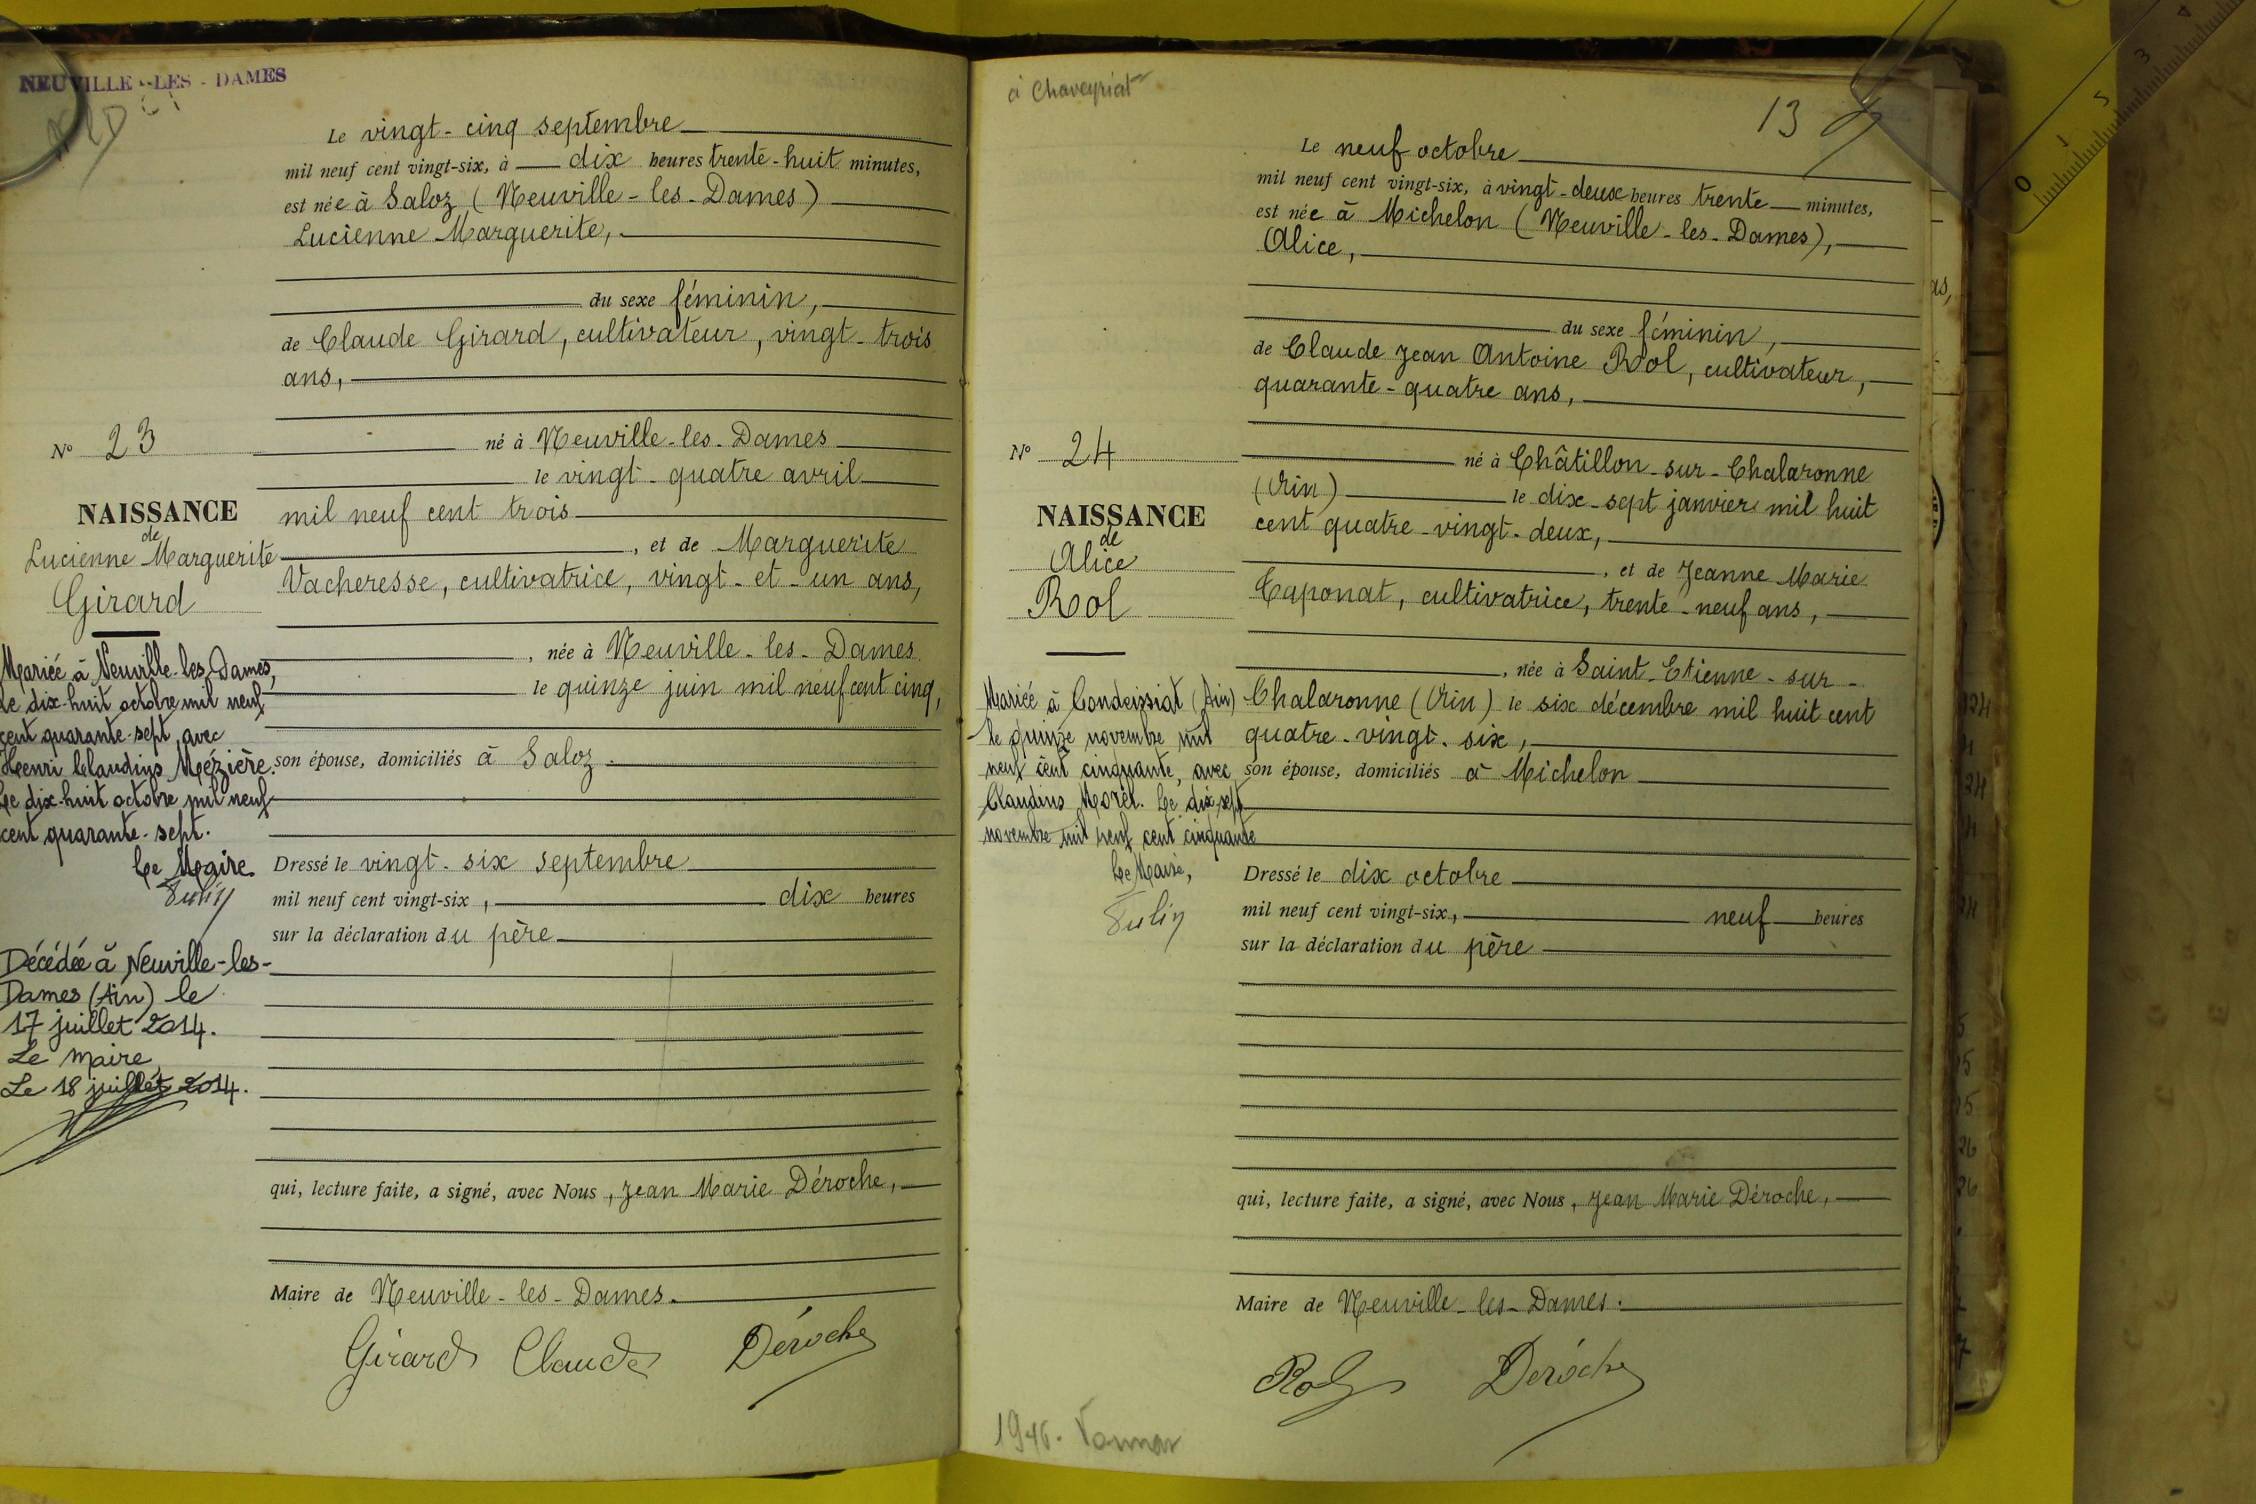 NEUVILLE-LES-DAMES
Le vingt-cinq septembre
mil neuf cent vingt-six, à dix heures trente-huit minutes,
est née à Saloz (Neuville-les-Dames)
Lucienne Marguerite,
du sexe féminin,
de Claude Girard, cultivateur, vingt-trois
ans,
né à Neuville-les-Dames
le vingt-quatre avril
mil neuf cent trois
, et de Marguerite
Vacheresse, cultivatrice, vingt-et-un ans,
, née à Neuville-les-Dames
le quinze juin mil neuf cent cinq,
son épouse, domiciliés à Saloz.
Dressé le vingt-six septembre
mil neuf cent vingt-six, dix heures
sur la déclaration du père
qui, lecture faite, a signé, avec Nous, Jean Marie Déroche,
Maire de Neuville-les-Dames.
Girard Claude Déroche
N° 23
NAISSANCE
de
Lucienne Marguerite
Girard
Mariée à Neuville-les-Dames,
le dix-huit octobre mil neuf
cent quarante-sept, avec
Henri Claudius Mézière.
Le dix-huit octobre mil neuf
cent quarante-sept.
Le Maire
Décédée à Neuville-les-
Dames (Ain) le
17 juillet 2014.
Le Maire
Le 18 juillet 2014.
à Chaveyriat
13
Le neuf octobre
mil neuf cent vingt-six, à vingt-deux heures trente minutes,
est née à Michelon (Neuville-les-Dames),
Alice,
du sexe féminin,
de Claude Jean Antoine Rol, cultivateur,
quarante-quatre ans,
né à Châtillon-sur-Chalaronne
(Ain) le dix-sept janvier mil huit
cent quatre-vingt-deux,
, et de Jeanne Marie
Caponat, cultivatrice, trente-neuf ans,
, née à Saint-Etienne-sur-
Chalaronne (Ain) le six décembre mil huit cent
quatre-vingt-six,
son épouse, domiciliés à Michelon
Dressé le dix octobre
mil neuf cent vingt-six, neuf heures
sur la déclaration du père
qui, lecture faite, a signé, avec Nous, Jean Marie Déroche,
Maire de Neuville-les-Dames.
Rol Déroche
N° 24
NAISSANCE
de
Alice
Rol
Mariée à Condeissiat (Ain)
le quinze novembre mil
neuf cent cinquante, avec
Claudius Morel. Le dix-sept
novembre mil neuf cent cinquante
Le Maire,
1946.